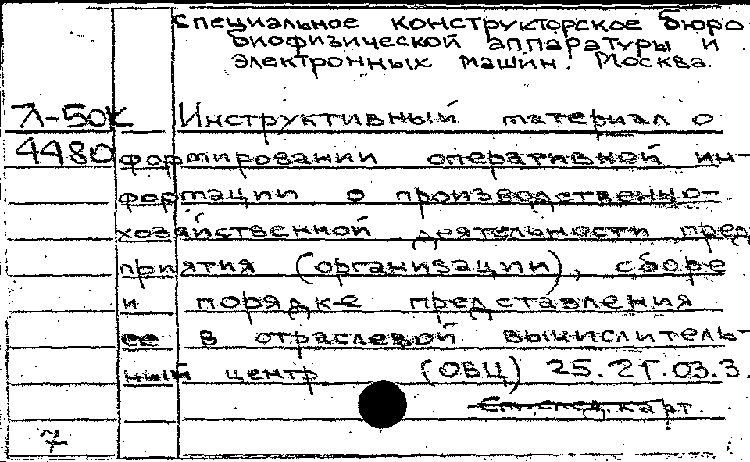 Специальное конструкторское бюро
биофизической аппаратуры и
электронных машин. Москва.
Л-50К Инструктивный материал о
4480 формировании оперативной ин-
формации о производственно-
хозяйственной деятельности пред
приятия (организации), сборе
и порядке представления
ее в отраслевой вычислитель-
ный центр (ОВЦ) 25.2Г.03.3.
См. след. карт.
7